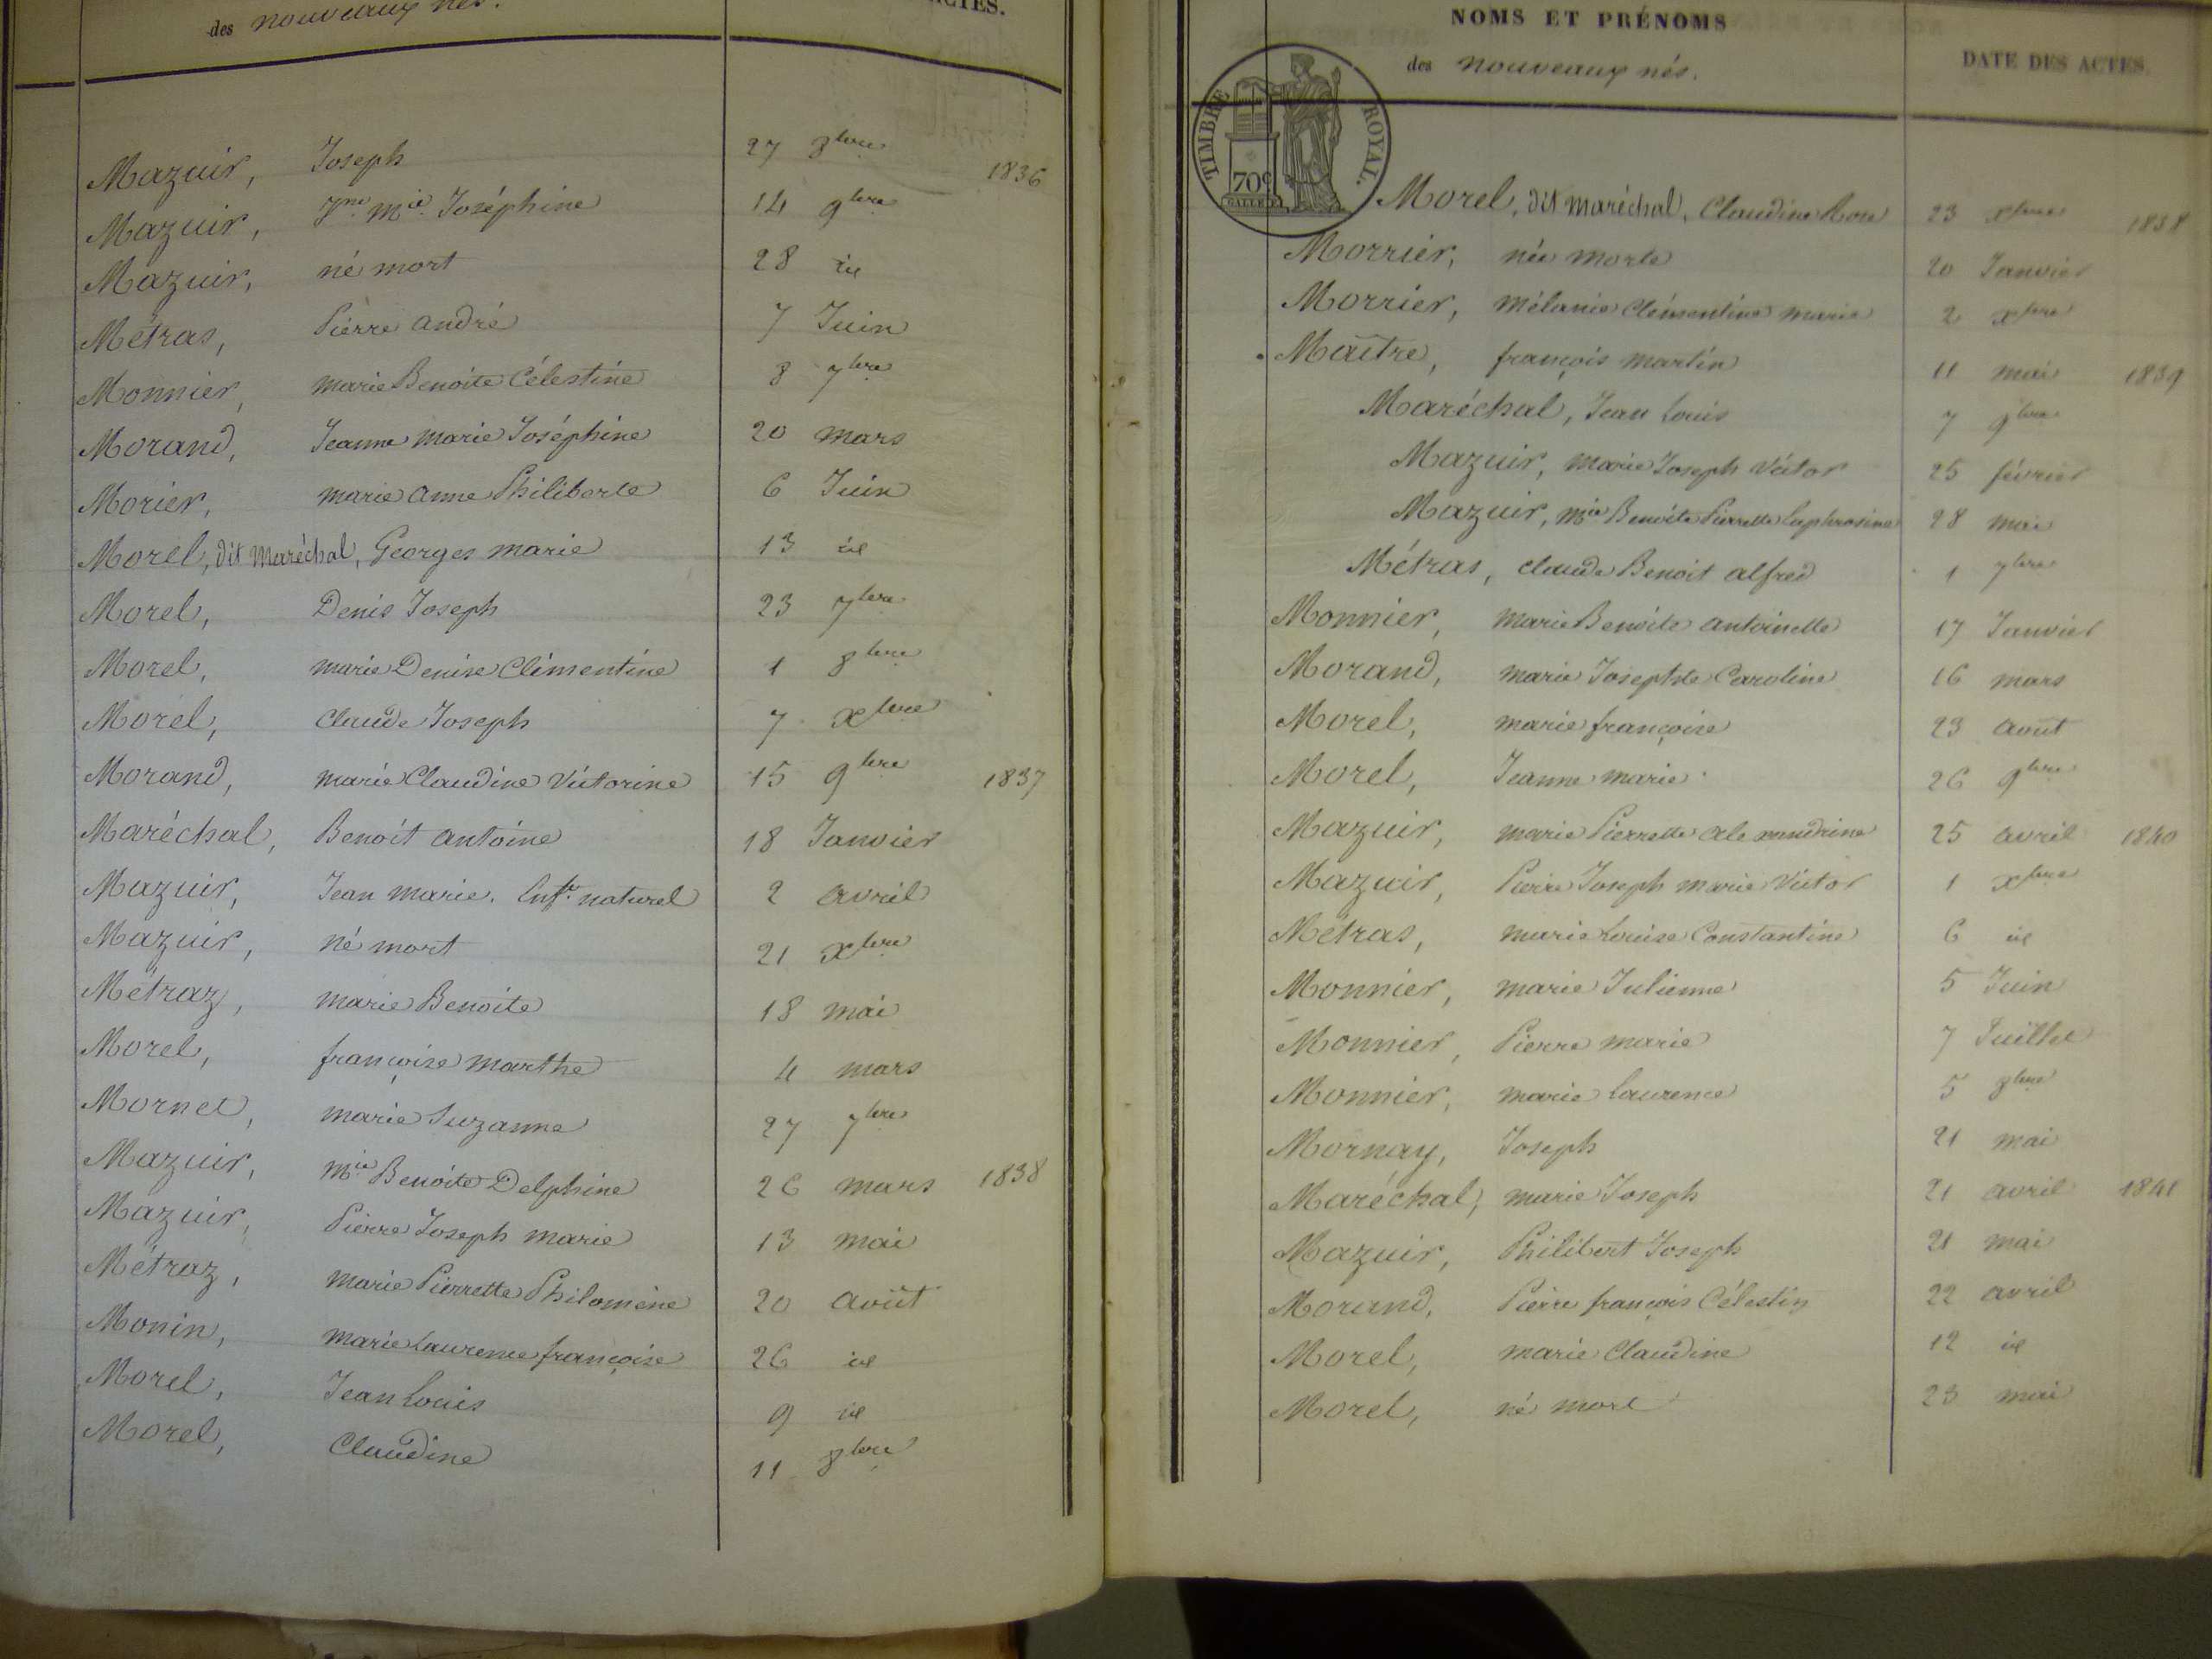 des nouveaux nés.
ACTES.
Mazuir, Joseph 27 8bre 1836
Mazuir, Jne Mie Joséphine 14 9bre
Mazuir, né mort 28 id
Métras, Pierre andré 7 Juin
Monnier, marie Benoite Célestine 8 7bre
Morand, Jeanne marie Joséphine 20 mars
Morier, marie anne Philiberte 6 Juin
Morel, dit Maréchal, Georges marie 13 id
Morel, Denis Joseph 23 7bre
Morel, marie Denise Clémentine 1 8bre
Morel, Claude Joseph 7 xbre
Morand, marie Claudine Victorine 15 9bre 1837
Maréchal, Benoit antoine 18 Janvier
Mazuir, Jean marie. Enft naturel 2 avril
Mazuir, né mort 21 xbre
Métraz, marie Benoite 18 mai
Morel, françoise marthe 4 mars
Mornet, marie Suzanne 27 7bre
Mazuir, Mie Benoite Delphine 26 mars 1838
Mazuir, Pierre Joseph marie 13 mai
Métraz, marie Pierrette Philomène 20 août
Monin, marie Laurence françoise 26 id
Morel, Jean Louis 9 id
Morel, Claudine 11 8bre
NOMS ET PRÉNOMS
des nouveaux nés.
DATE DES ACTES.
TIMBRE ROYAL.
70c
Morel, dit maréchal, Claudine Rose 23 xbre 1838
Morrier, née morte 20 Janvier
Morrier, Mélanie Clémentine marie 2 xbre
Maître, françois martin 11 mai 1839
Maréchal, Jean Louis 7 9bre
Mazuir, marie Joseph Victor 25 février
Mazuir, Mie Benoite Pierrette Euphrosine 28 mai
Métras, Claude Benoit alfred 1 7bre
Monnier, marie Benoite antoinette 17 Janvier
Morand, marie Josephte Caroline 16 mars
Morel, marie françoise 23 août
Morel, Jeanne marie 26 9bre
Mazuir, marie Pierrette alexandrine 25 avril 1840
Mazuir, Pierre Joseph marie Victor 1 xbre
Métras, marie Louise Constantine 6 id
Monnier, marie Julienne 5 Juin
Monnier, Pierre marie 7 Juillet
Monnier, marie Laurence 5 8bre
Mornay, Joseph 21 mai
Maréchal, marie Joseph 21 avril 1841
Mazuir, Philibert Joseph 21 mai
Morand, Pierre françois Célestin 22 avril
Morel, marie Claudine 12 id
Morel, né mort 23 mai